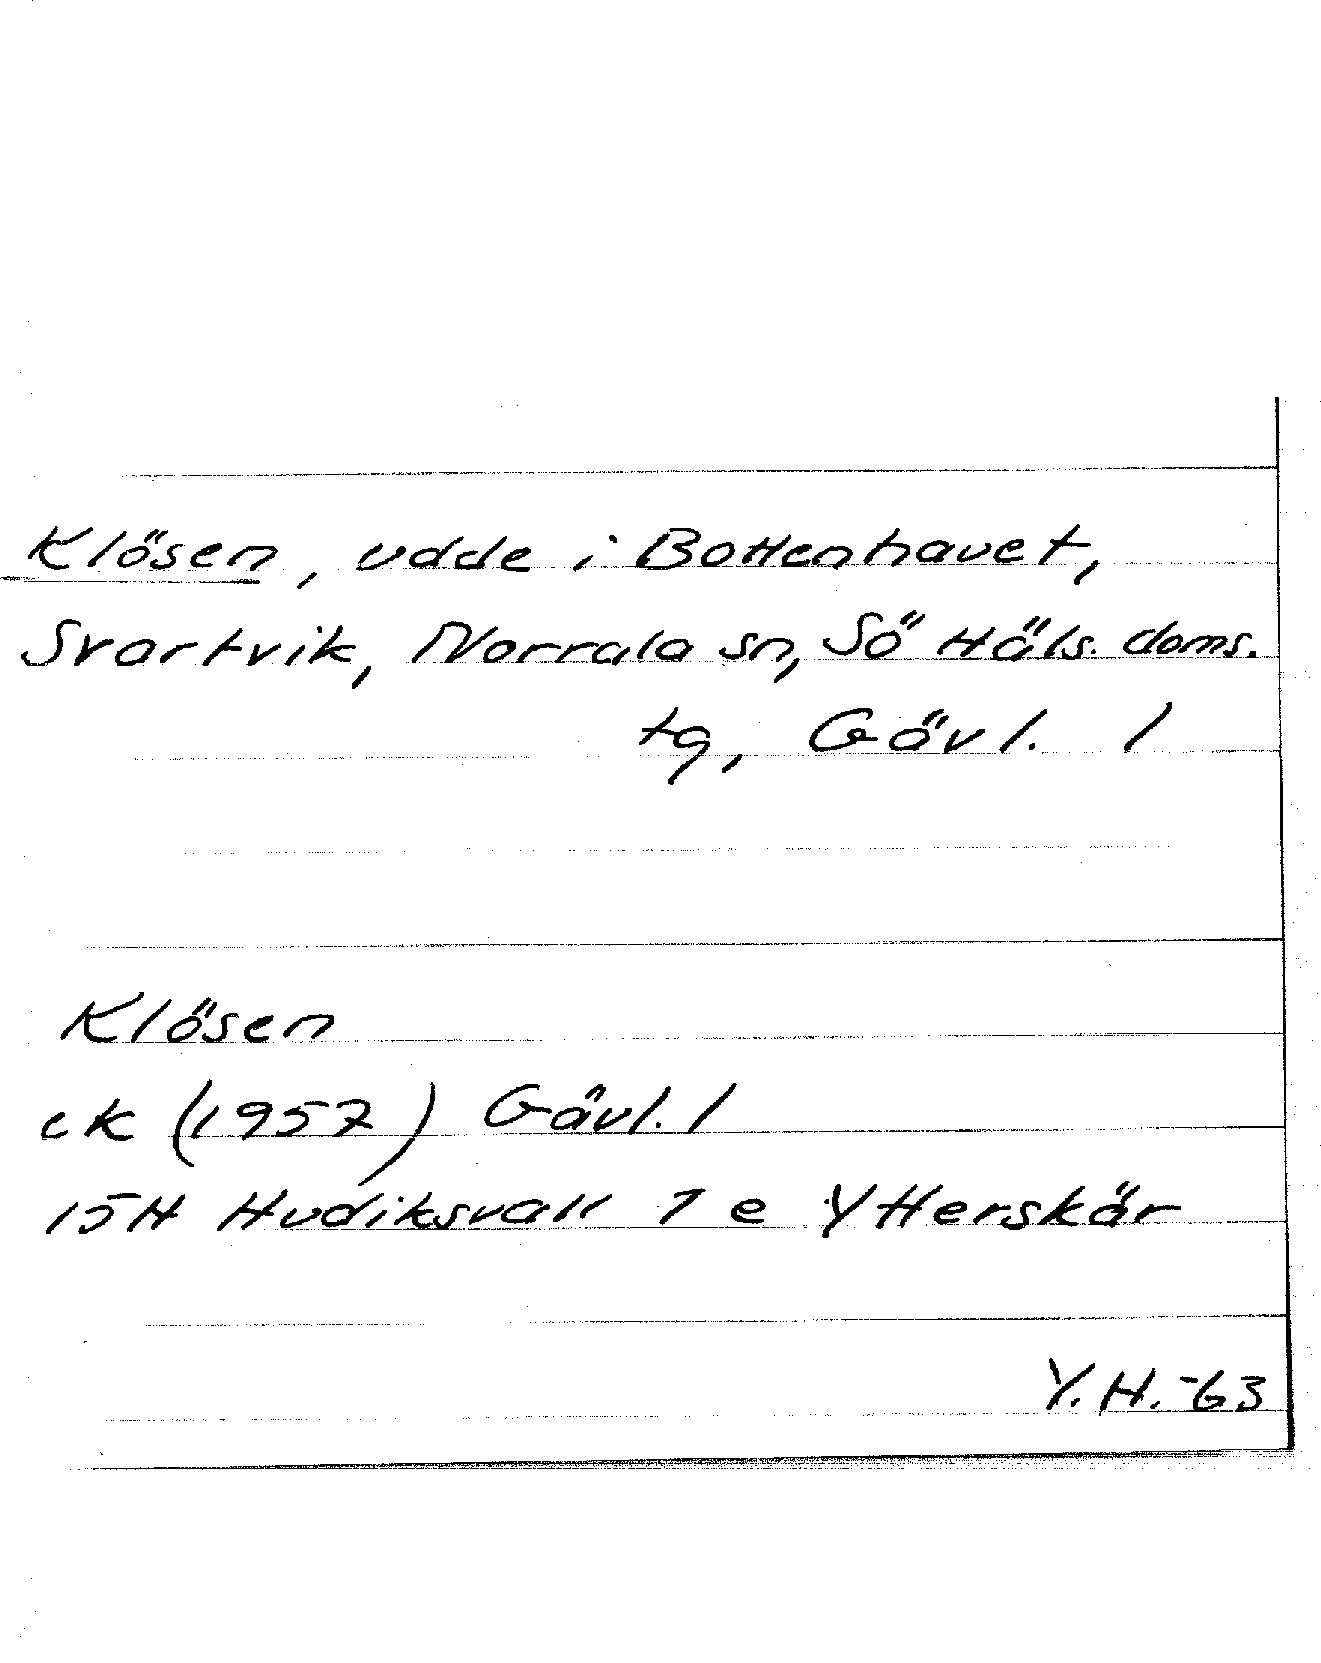 Klösen, udde i Bottenhavet,
Svartvik, Norrala sn, Sö Häls. doms.
tg, Gävl. l
Klösen
ek (1957) Gävl. l
15H Hudiksvall 7 e Ytterskär
Y.H. -63